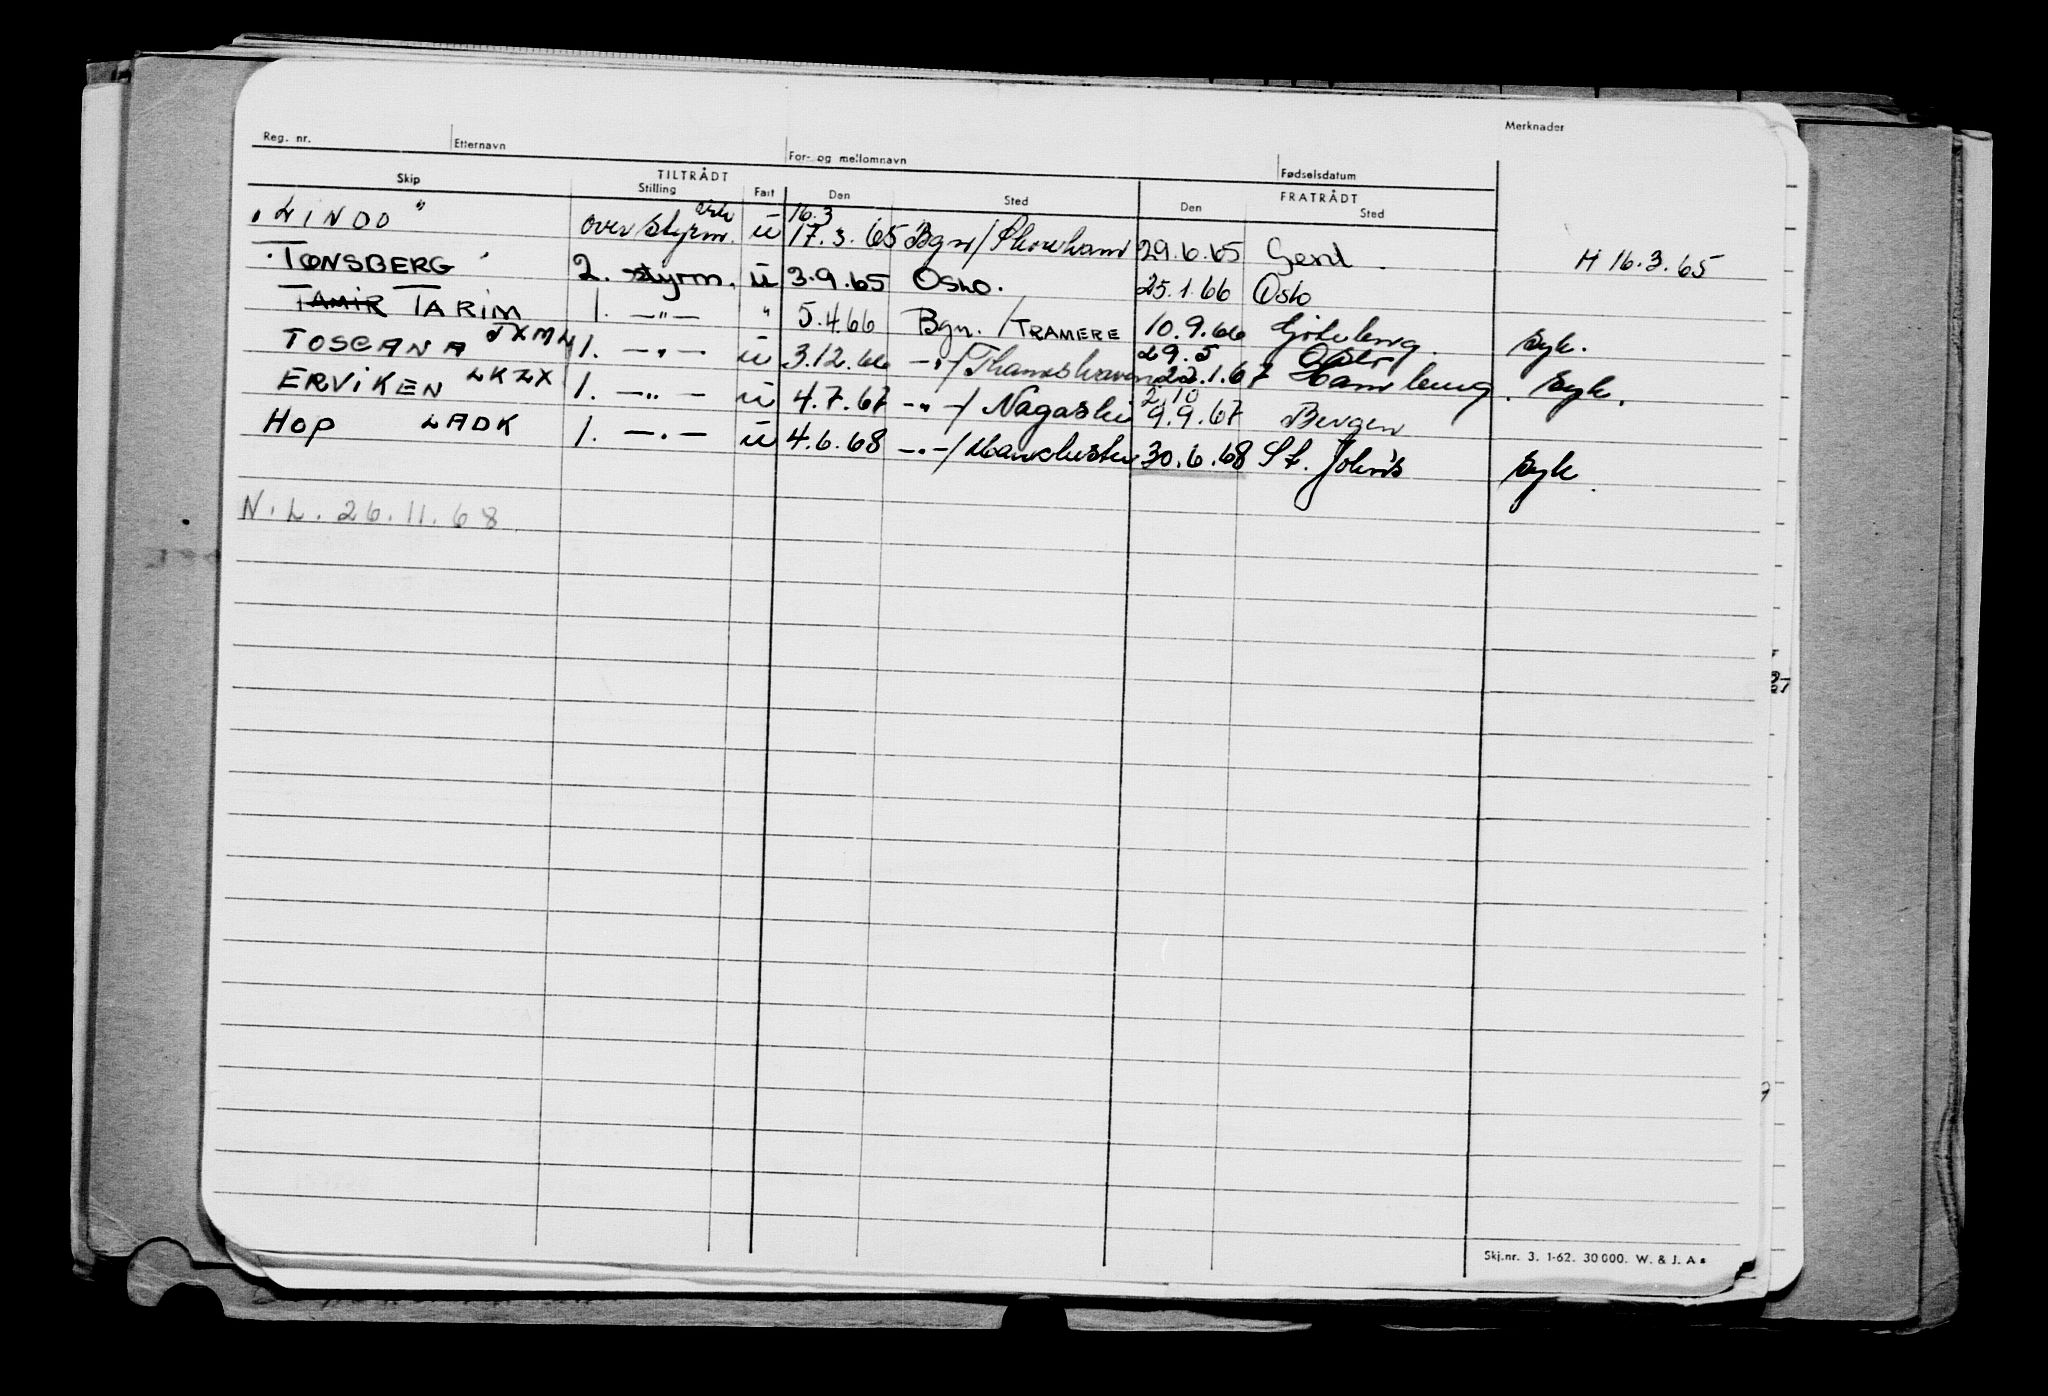 Merknader
Reg. nr. Etternavn For- og mellomnavn Fødselsdatum
TILTRÅDT FRATRÅDT
Skip Stilling Fart Den Sted Den Sted
"LINDO" over styrm. u 16.3 17.3.65 Bgn/Shoreham 29.6.65 Gent H 16.3.65
TØNSBERG 2. styrm. u 3.9.65 Oslo. 25.1.66 Oslo
TAMIR TARIM 1. —"— " 5.4.66 Bgn. /TRAMERE 10.9.66 Göteborg. syk.
TOSCANA JXML 1. —"— u 3.12.66 —"—/Thamshavn 29.5 22.1.67 Oslo Hamburg. syk.
ERVIKEN LKZX 1. —"— u 4.7.67 —"—/Nagaski 2.10 9.9.67 Bergen
HOP LADK 1. —"— u 4.6.68 —"—/Manchester 30.6.68 St. John's syk.
N.L. 26.11.68
Skj.nr. 3. 1-62. 30 000. W. & J. A s